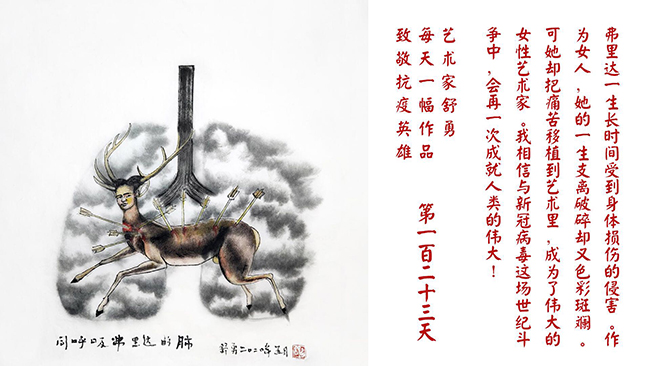 同呼吸弗里达的肺
舒勇二〇二〇年五月
弗里达一生长时间受到身体损伤的侵害。作
为女人，她的一生支离破碎却又色彩斑斓。
可她却把痛苦移植到艺术里，成为了伟大的
女性艺术家。我相信与新冠病毒这场世纪斗
争中，会再一次成就人类的伟大！
艺术家舒勇
每天一幅作品
致敬抗疫英雄
第一百二十三天